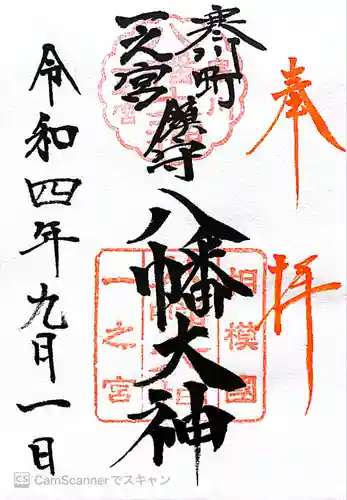 奉
拝
寒川町
一之宮
鎮守
八幡大神
相模國
一之宮
令和四年九月一日
CS CamScannerでスキャン